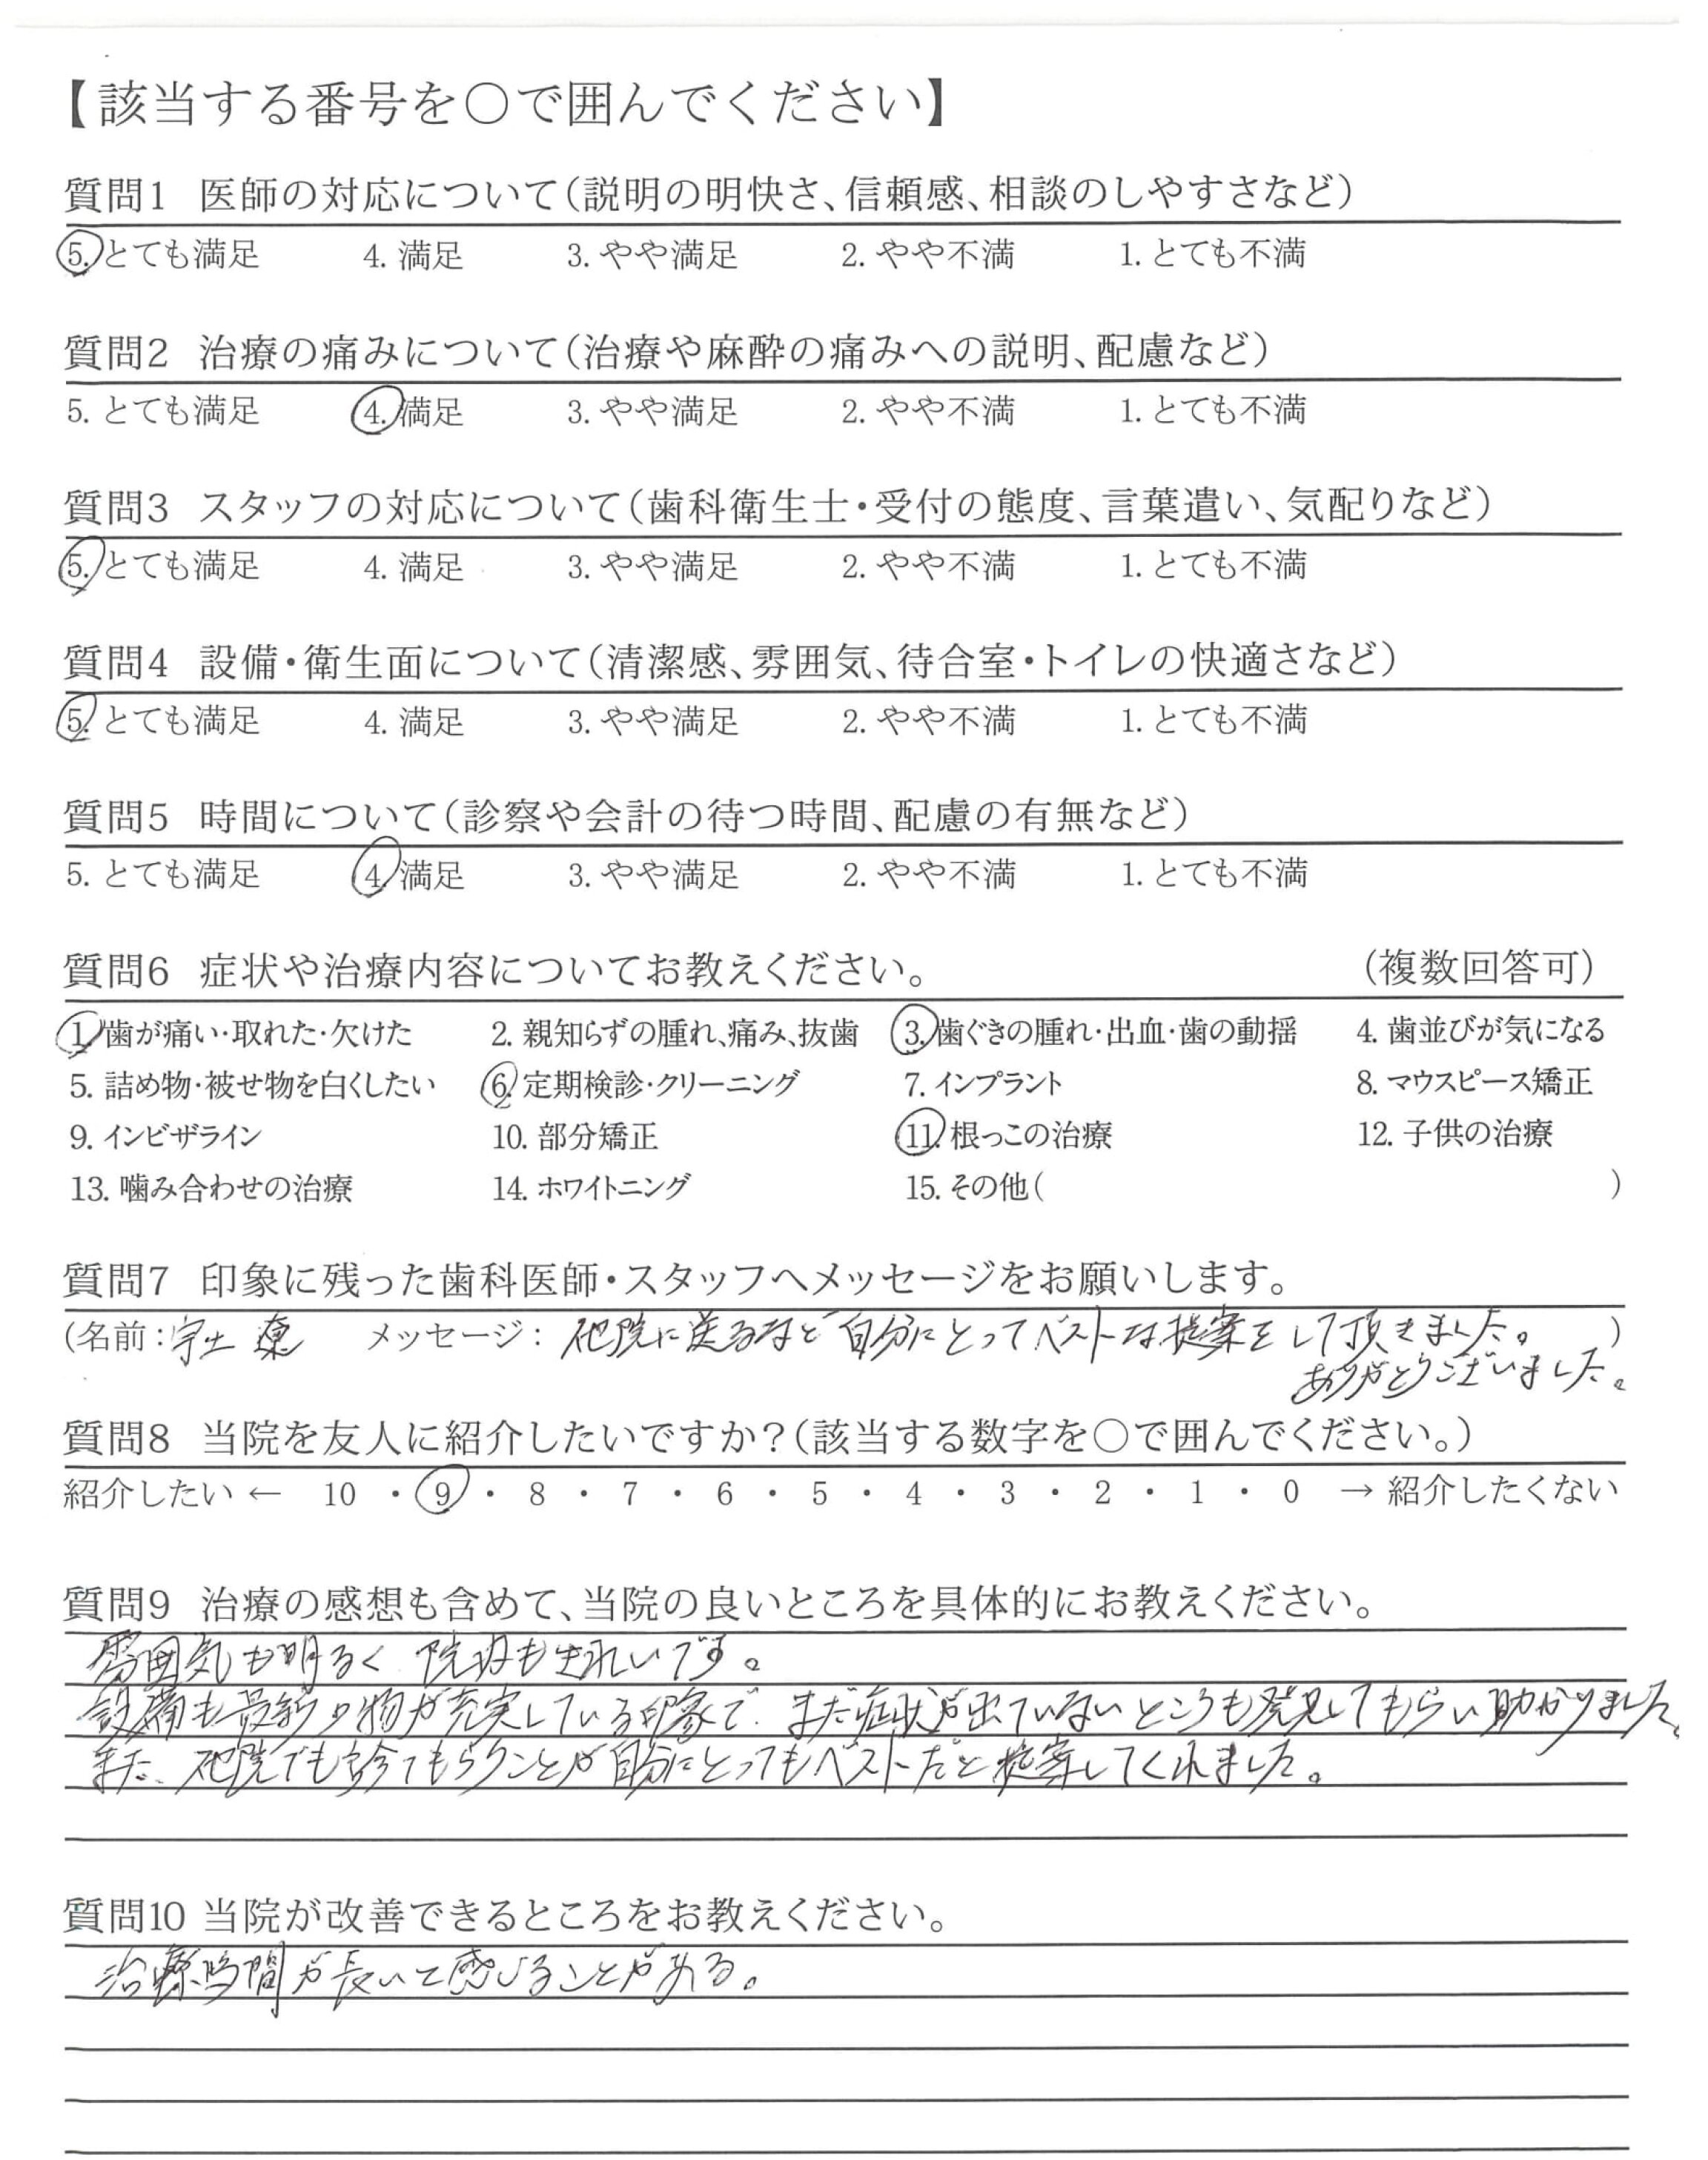 【該当する番号を○で囲んでください】
質問1 医師の対応について(説明の明快さ、信頼感、相談のしやすさなど)
5. とても満足 4. 満足 3. やや満足 2. やや不満 1. とても不満
質問2 治療の痛みについて(治療や麻酔の痛みへの説明、配慮など)
5. とても満足 4. 満足 3. やや満足 2. やや不満 1. とても不満
質問3 スタッフの対応について(歯科衛生士・受付の態度、言葉遣い、気配りなど)
5. とても満足 4. 満足 3. やや満足 2. やや不満 1. とても不満
質問4 設備・衛生面について(清潔感、雰囲気、待合室・トイレの快適さなど)
5. とても満足 4. 満足 3. やや満足 2. やや不満 1. とても不満
質問5 時間について(診察や会計の待つ時間、配慮の有無など)
5. とても満足 4. 満足 3. やや満足 2. やや不満 1. とても不満
質問6 症状や治療内容についてお教えください。 (複数回答可)
1. 歯が痛い・取れた・欠けた 2. 親知らずの腫れ、痛み、抜歯 3. 歯ぐきの腫れ・出血・歯の動揺 4. 歯並びが気になる
5. 詰め物・被せ物を白くしたい 6. 定期検診・クリーニング 7. インプラント 8. マウスピース矯正
9. インビザライン 10. 部分矯正 11. 根っこの治療 12. 子供の治療
13. 噛み合わせの治療 14. ホワイトニング 15. その他( )
質問7 印象に残った歯科医師・スタッフへメッセージをお願いします。
(名前: 宇土 遼 メッセージ: 他院に送るなど自分にとってベストな提案をして頂きました。 )
ありがとうございました。
質問8 当院を友人に紹介したいですか?(該当する数字を○で囲んでください。)
紹介したい ← 10 ・ 9 ・ 8 ・ 7 ・ 6 ・ 5 ・ 4 ・ 3 ・ 2 ・ 1 ・ 0 → 紹介したくない
質問9 治療の感想も含めて、当院の良いところを具体的にお教えください。
雰囲気も明るく 院内もきれいです。
設備も最新の物が充実している印象で、まだ症状が出ていないところも発見してもらい助かりました。
また、他院でも診てもらうことが自分にとってもベストだと提案してくれました。
質問10 当院が改善できるところをお教えください。
治療時間が長いと感じることがある。